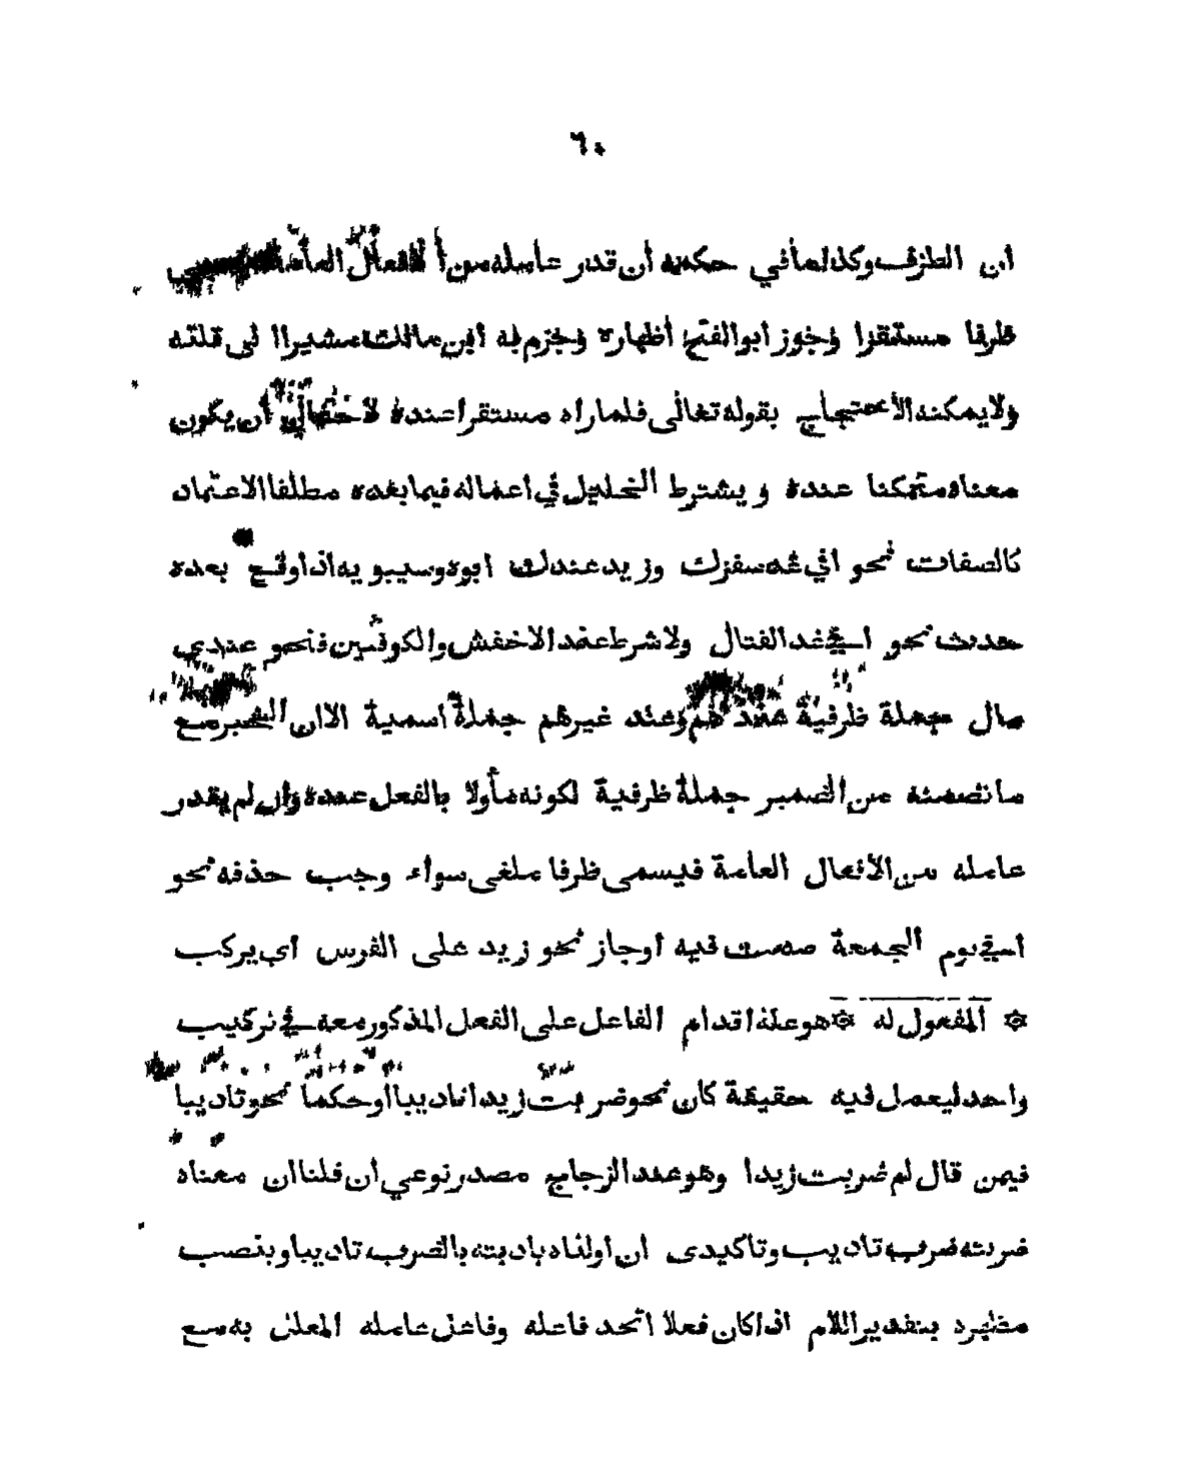 ٦٠
ان الظرف وكذا ما في حكمه أن قدر عامله من الأفعال العامة يسمى
ظرفا مستقرا وجوز أبو الفتح أظهاره وجزم به ابن مالك مشيرا الى قلته
ولا يمكنه الأحتجاج بقوله تعالى فلما راه مستقرا عنده لاحتمال أن يكون
معناه متمكنا عنده ويشترط الخليل في اعماله فيما بعده مطلقا الاعتماد
كالصفات نحو افي غد سفرك وزيد عندك ابوه وسيبويه اذا وقع بعده
حدث نحو افي غد القتال ولا شرط عند الاخفش والكوفيين فنحو عندي
مال جملة ظرفية عندهم وعند غيرهم جملة اسمية الا ان الخبر مع
ما تضمنه من الضمير جملة ظرفية لكونه مأولا بالفعل عنده وان لم يقدر
عامله من الأفعال العامة فيسمى ظرفا ملغى سواء وجب حذفه نحو
افي يوم الجمعة صمت فيه او جاز نحو زيد على الفرس أى يركب
۞ المفعول له ۞ هو علة اقدام الفاعل على الفعل المذكور معه في تركيب
واحد ليعمل فيه حقيقة كان نحو ضربت زيدا تاديبا أو حكما نحو تاديبا
فيمن قال لم ضربت زيدا وهو عند الزجاج مصدر نوعي أن قلنا ان معناه
ضربته ضرب تاديب وتاكيدى ان اولناه بادبته بالضرب تاديبا وينصب
بتقدير اللام اذا كان فعلا اتحد فاعله وفاعل عامله المعلل به مع